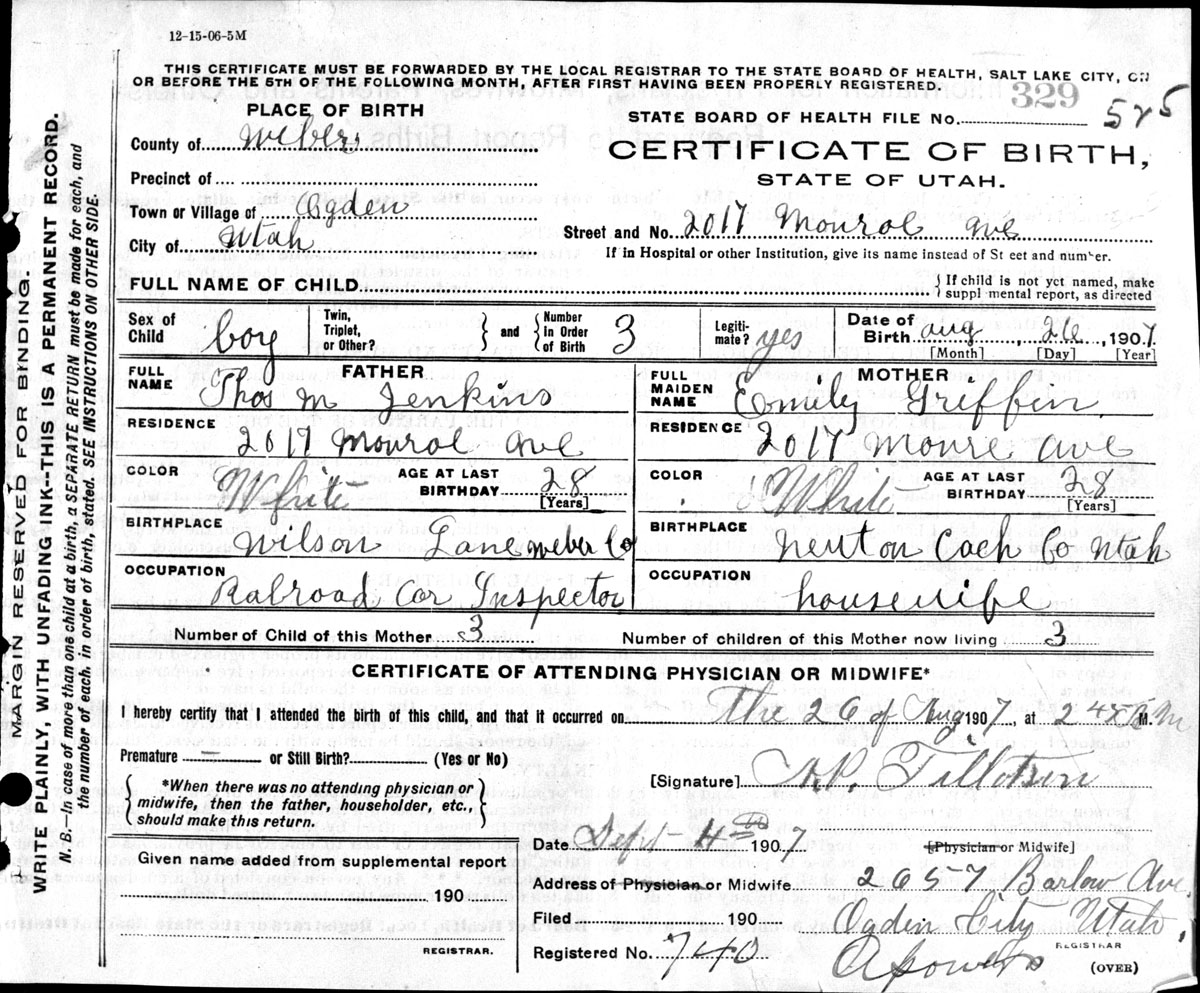 12-15-06-5M
THIS CERTIFICATE MUST BE FORWARDED BY THE LOCAL REGISTRAR TO THE STATE BOARD OF HEALTH, SALT LAKE CITY, ON
OR BEFORE THE 5TH OF THE FOLLOWING MONTH, AFTER FIRST HAVING BEEN PROPERLY REGISTERED.
PLACE OF BIRTH
STATE BOARD OF HEALTH FILE No. 329 525
County of Weber
CERTIFICATE OF BIRTH,
STATE OF UTAH.
Precinct of
Town or Village of Ogden
City of Utah
Street and No. 2017 Monroe Ave
If in Hospital or other Institution, give its name instead of St eet and number.
FULL NAME OF CHILD
{ If child is not yet named, make
suppl mental report, as directed
Sex of Child boy
Twin, Triplet, or Other? } and { Number in Order of Birth 3
Legiti-mate? yes
Date of Birth aug, 26, 1907
[Month] [Day] [Year]
FATHER
FULL NAME Thos M Jenkins
MOTHER
FULL MAIDEN NAME Emily Griffin
RESIDENCE 2017 Monroe Ave
RESIDENCE 2017 Monre Ave
COLOR White AGE AT LAST BIRTHDAY 28 [Years]
COLOR White AGE AT LAST BIRTHDAY 28 [Years]
BIRTHPLACE Wilson Lane Weber Co
BIRTHPLACE Newton Cach Co Utah
OCCUPATION Ralroad Car Inspector
OCCUPATION housewife
Number of Child of this Mother 3
Number of children of this Mother now living 3
CERTIFICATE OF ATTENDING PHYSICIAN OR MIDWIFE*
I hereby certify that I attended the birth of this child, and that it occurred on the 26 of Aug 1907, at 2 45 M.
Premature or Still Birth? (Yes or No)
{ *When there was no attending physician or
midwife, then the father, householder, etc.,
should make this return. }
[Signature] Tillotson
[Physician or Midwife]
Date Sept 4th 1907.
Given name added from supplemental report
190
REGISTRAR.
Address of Physician or Midwife 2657 Barlow Ave.
Filed 190 Ogden City Utah.
Registered No. 740
REGISTRAR
(OVER)
MARGIN RESERVED FOR BINDING
WRITE PLAINLY, WITH UNFADING INK--THIS IS A PERMANENT RECORD.
N. B.—In case of more than one child at a birth, a SEPARATE RETURN must be made for each, and
the number of each, in order of birth, stated. SEE INSTRUCTIONS ON OTHER SIDE.